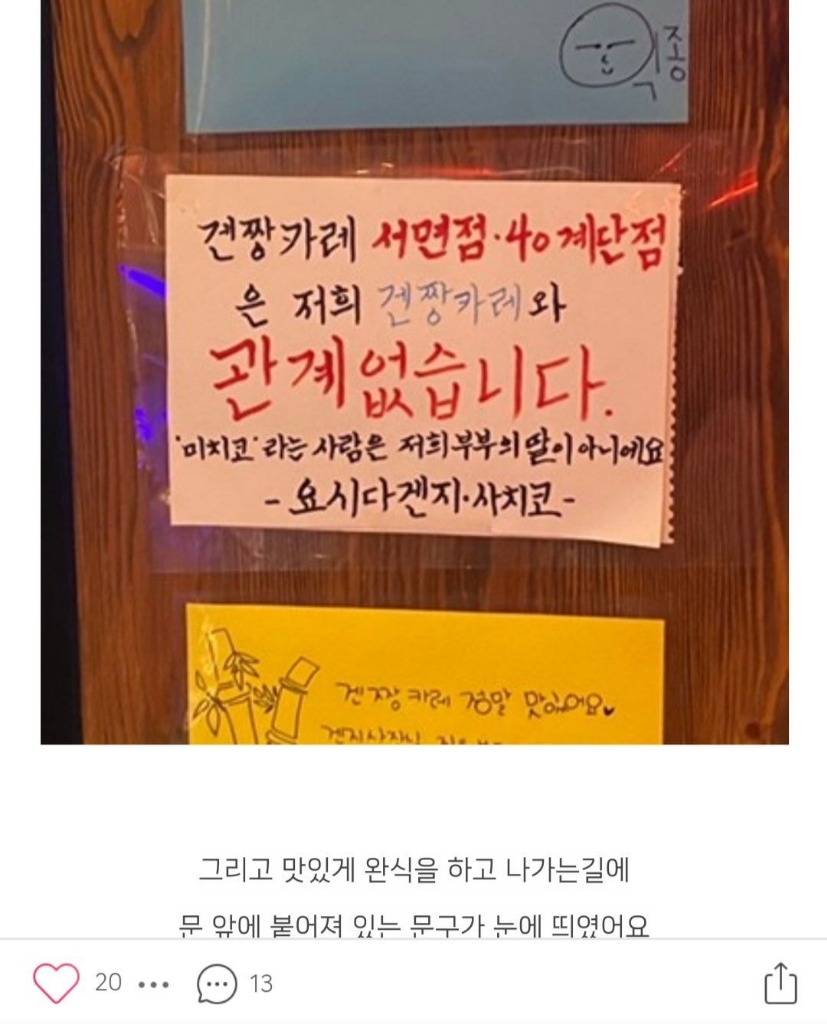 종
겐짱카레 서면점·40계단점
은 저희 겐짱카레와
관계없습니다.
'미치코'라는 사람은 저희부부의 딸이아니에요
-요시다겐지·사치코-
겐짱카레 정말 맛있어요
그리고 맛있게 완식을 하고 나가는길에
문 앞에 붙어져 있는 문구가 눈에 띄였어요
20
13